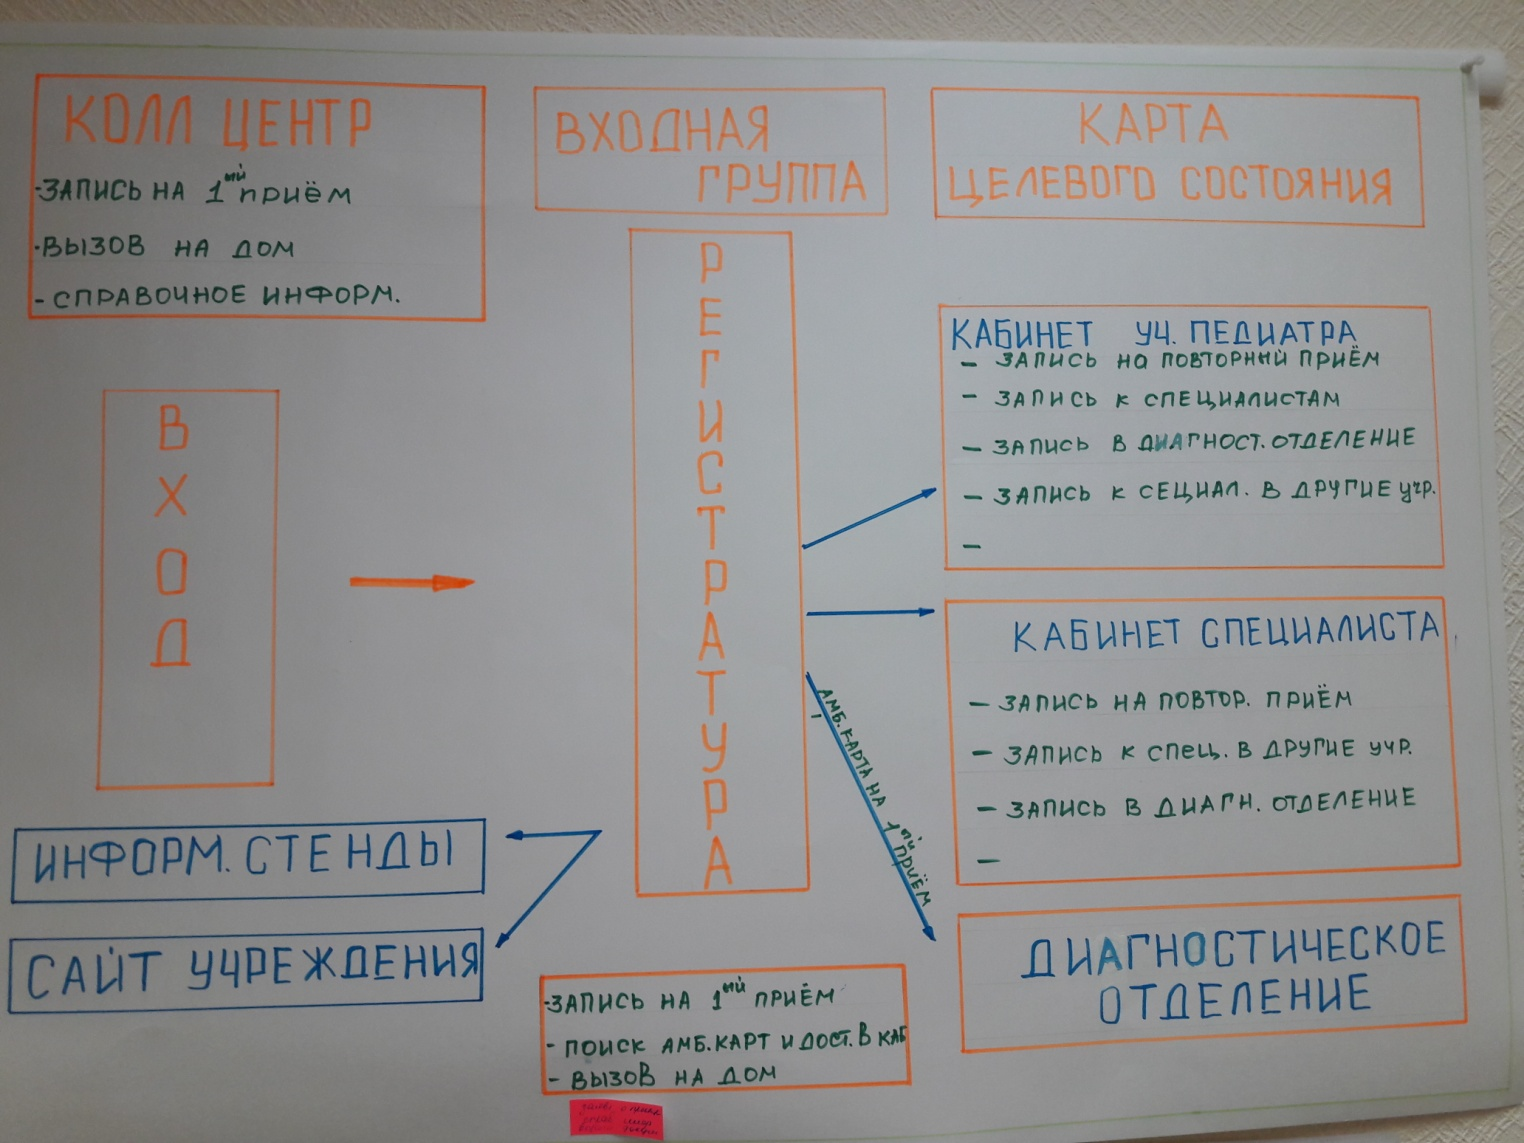 КОЛЛ ЦЕНТР
-ЗАПИСЬ НА 1ый ПРИЁМ
-ВЫЗОВ НА ДОМ
- СПРАВОЧНОЕ ИНФОРМ.
ВХОДНАЯ
ГРУППА
КАРТА
ЦЕЛЕВОГО СОСТОЯНИЯ
ВХОД
РЕГИСТРАТУРА
КАБИНЕТ УЧ. ПЕДИАТРА
- ЗАПИСЬ НА ПОВТОРНЫЙ ПРИЁМ
- ЗАПИСЬ К СПЕЦИАЛИСТАМ
- ЗАПИСЬ В ДИАГНОСТ. ОТДЕЛЕНИЕ
- ЗАПИСЬ К СЕЦИАЛ. В ДРУГИЕ УЧР.
-
КАБИНЕТ СПЕЦИАЛИСТА
- ЗАПИСЬ НА ПОВТОР. ПРИЁМ
- ЗАПИСЬ К СПЕЦ. В ДРУГИЕ УЧР.
- ЗАПИСЬ В ДИАГН. ОТДЕЛЕНИЕ
-
АМБ. КАРТА НА 1ый ПРИЁМ
ДИАГНОСТИЧЕСКОЕ
ОТДЕЛЕНИЕ
ИНФОРМ. СТЕНДЫ
САЙТ УЧРЕЖДЕНИЯ
-ЗАПИСЬ НА 1ый ПРИЁМ
- ПОИСК АМБ. КАРТ И ДОСТ. В КАБ
- ВЫЗОВ НА ДОМ